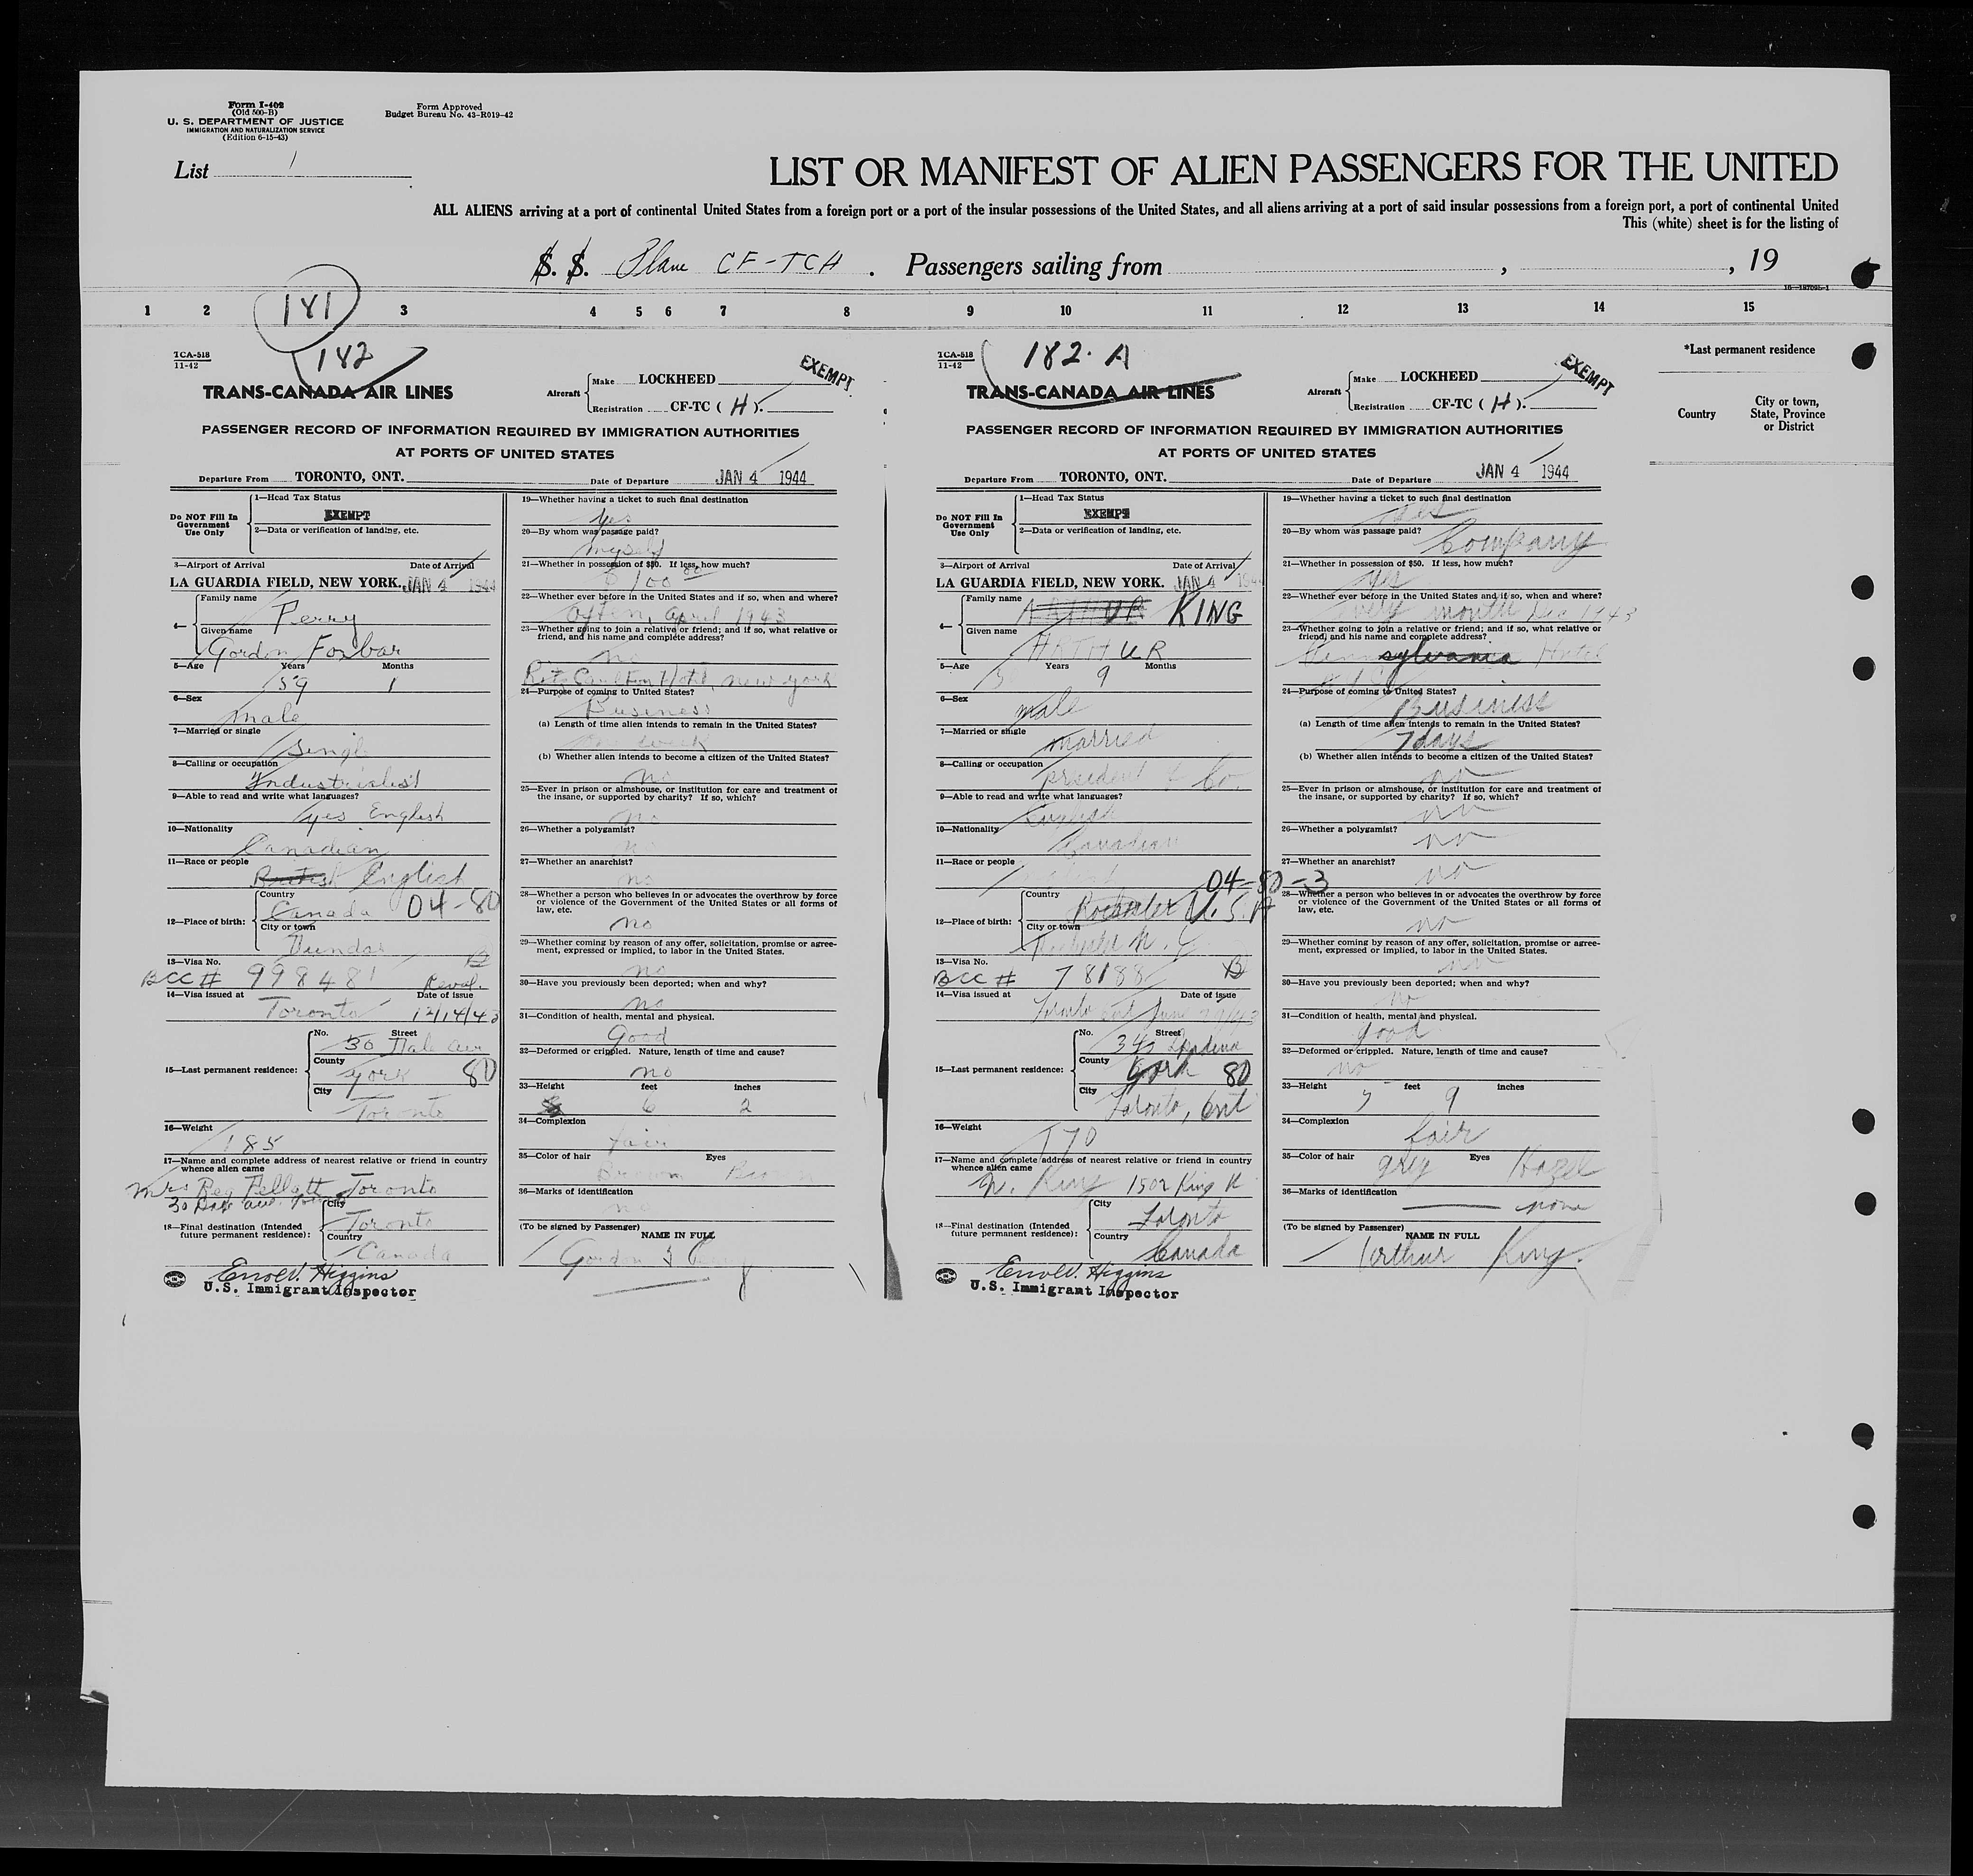 Form I-402
(Old 500-B)
U. S. DEPARTMENT OF JUSTICE
IMMIGRATION AND NATURALIZATION SERVICE
(Edition 6-15-43)
Form Approved
Budget Bureau No. 43-R019-42
List 1
LIST OR MANIFEST OF ALIEN PASSENGERS FOR THE UNITED
ALL ALIENS arriving at a port of continental United States from a foreign port or a port of the insular possessions of the United States, and all aliens arriving at a port of said insular possessions from a foreign port, a port of continental United
This (white) sheet is for the listing of
S. S. Plane CF-TCH . Passengers sailing from , , 19
1 2 3 4 5 6 7 8 9 10 11 12 13 14 15
181
TCA-518
11-42
182
TRANS-CANADA AIR LINES
Aircraft
Make LOCKHEED
Registration CF-TC ( H ).
EXEMPT
PASSENGER RECORD OF INFORMATION REQUIRED BY IMMIGRATION AUTHORITIES
AT PORTS OF UNITED STATES
Departure From TORONTO, ONT. Date of Departure JAN 4 1944
Do NOT Fill In
Government
Use Only
1—Head Tax Status
EXEMPT
2—Data or verification of landing, etc.
3—Airport of Arrival Date of Arrival
LA GUARDIA FIELD, NEW YORK. JAN 4 1944
4—
Family name
Perry
Given name
Gordon Foxbar
5—Age Years Months
59 1
6—Sex
male
7—Married or single
Single
8—Calling or occupation
Industrialist
9—Able to read and write what languages?
yes English
10—Nationality
Canadian
11—Race or people
British English
12—Place of birth:
Country
Canada 04-80
City or town
Dundas
13—Visa No.
BCC # 998481 Reval.
14—Visa issued at Date of issue
Toronto 12/14/43
15—Last permanent residence:
No. Street
30 Dale Ave
County
York 80
City
Toronto
16—Weight
185
17—Name and complete address of nearest relative or friend in country
whence alien came
Mrs Reg Pellatt Toronto
30 Dale ave.
18—Final destination (Intended
future permanent residence):
City
Toronto
Country
Canada
Errol V. Higgins
U.S. Immigrant Inspector
19—Whether having a ticket to such final destination
yes
20—By whom was passage paid?
myself
21—Whether in possession of $50. If less, how much?
$100
22—Whether ever before in the United States and if so, when and where?
Often, April 1943
23—Whether going to join a relative or friend; and if so, what relative or
friend, and his name and complete address?
no
Ritz Carlton Hotel, new york
24—Purpose of coming to United States?
Business
(a) Length of time alien intends to remain in the United States?
one week
(b) Whether alien intends to become a citizen of the United States?
no
25—Ever in prison or almshouse, or institution for care and treatment of
the insane, or supported by charity? If so, which?
no
26—Whether a polygamist?
no
27—Whether an anarchist?
no
28—Whether a person who believes in or advocates the overthrow by force
or violence of the Government of the United States or all forms of
law, etc.
no
29—Whether coming by reason of any offer, solicitation, promise or agree-
ment, expressed or implied, to labor in the United States.
no
30—Have you previously been deported; when and why?
no
31—Condition of health, mental and physical.
Good
32—Deformed or crippled. Nature, length of time and cause?
no
33—Height feet inches
6 2
34—Complexion
fair
35—Color of hair Eyes
Brown Brown
36—Marks of identification
no
(To be signed by Passenger) NAME IN FULL
Gordon F Perry
TCA-518
11-42
182-A
TRANS-CANADA AIR LINES
Aircraft
Make LOCKHEED
Registration CF-TC ( H ).
EXEMPT
PASSENGER RECORD OF INFORMATION REQUIRED BY IMMIGRATION AUTHORITIES
AT PORTS OF UNITED STATES
Departure From TORONTO, ONT. Date of Departure JAN 4 1944
Do NOT Fill In
Government
Use Only
1—Head Tax Status
EXEMPT
2—Data or verification of landing, etc.
3—Airport of Arrival Date of Arrival
LA GUARDIA FIELD, NEW YORK. JAN 4
4—
Family name
KING
Given name
ARTHUR
5—Age Years Months
9
6—Sex
male
7—Married or single
married
8—Calling or occupation
president of Co.
9—Able to read and write what languages?
English
10—Nationality
Canadian
11—Race or people
12—Place of birth:
04-80-3
Country
Rochester U.S.A
City or town
Rochester N.Y.
13—Visa No.
BCC # 78188
14—Visa issued at Date of issue
Toronto Ont June
15—Last permanent residence:
No. Street
Spadina
County
York 80
City
Toronto, Ont
16—Weight
170
17—Name and complete address of nearest relative or friend in country
whence alien came
King 1502 King W
18—Final destination (Intended
future permanent residence):
City
Toronto
Country
Canada
Errol V. Higgins
U.S. Immigrant Inspector
19—Whether having a ticket to such final destination
yes
20—By whom was passage paid?
Company
21—Whether in possession of $50. If less, how much?
yes
22—Whether ever before in the United States and if so, when and where?
every month Dec 1943
23—Whether going to join a relative or friend; and if so, what relative or
friend, and his name and complete address?
Pennsylvania Hotel
24—Purpose of coming to United States?
Business
(a) Length of time alien intends to remain in the United States?
7 days
(b) Whether alien intends to become a citizen of the United States?
no
25—Ever in prison or almshouse, or institution for care and treatment of
the insane, or supported by charity? If so, which?
no
26—Whether a polygamist?
no
27—Whether an anarchist?
no
28—Whether a person who believes in or advocates the overthrow by force
or violence of the Government of the United States or all forms of
law, etc.
no
29—Whether coming by reason of any offer, solicitation, promise or agree-
ment, expressed or implied, to labor in the United States.
no
30—Have you previously been deported; when and why?
no
31—Condition of health, mental and physical.
good
32—Deformed or crippled. Nature, length of time and cause?
no
33—Height feet inches
5 9
34—Complexion
fair
35—Color of hair Eyes
grey Hazel
36—Marks of identification
none
(To be signed by Passenger) NAME IN FULL
Arthur King.
*Last permanent residence
Country
City or town,
State, Province
or District